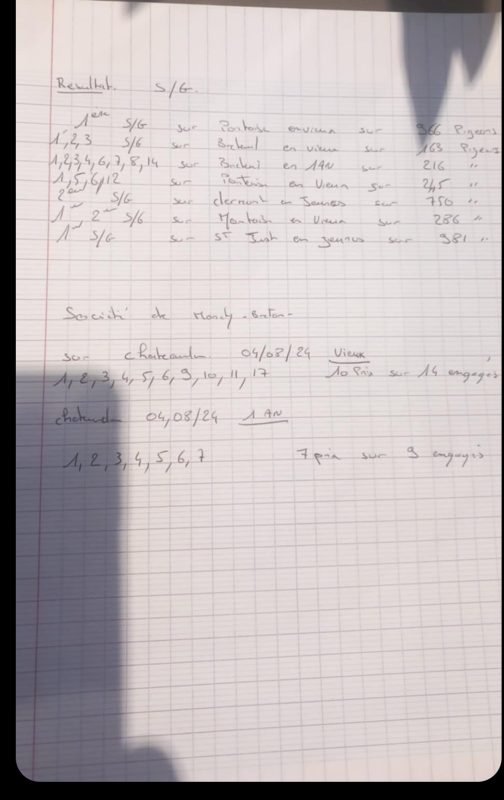 Resultat. S/G.
1er S/G sur Pontoise en vieux sur 966 Pigeons
1,2,3 S/G sur Breteuil en vieux sur 163 Pigeons
1,2,3,4,6,7,8,14 sur Breteuil en 1AN sur 216 "
1,5,6,12 sur Pontoise en Vieux sur 245 "
2eme S/G sur clermont en Jeunes sur 750 "
1er 2eme S/G sur Pontoise en Vieux sur 286 "
1er S/G sur St Just en jeunes sur 981 "
Société de Monchy-Breton-
sur chateaudun 04/08/24 Vieux
1, 2, 3, 4, 5, 6, 9, 10, 11, 17 10 Prix sur 14 engagés
chateaudun 04,08/24 1 AN
1, 2, 3, 4, 5, 6, 7 7 prix sur 9 engagés